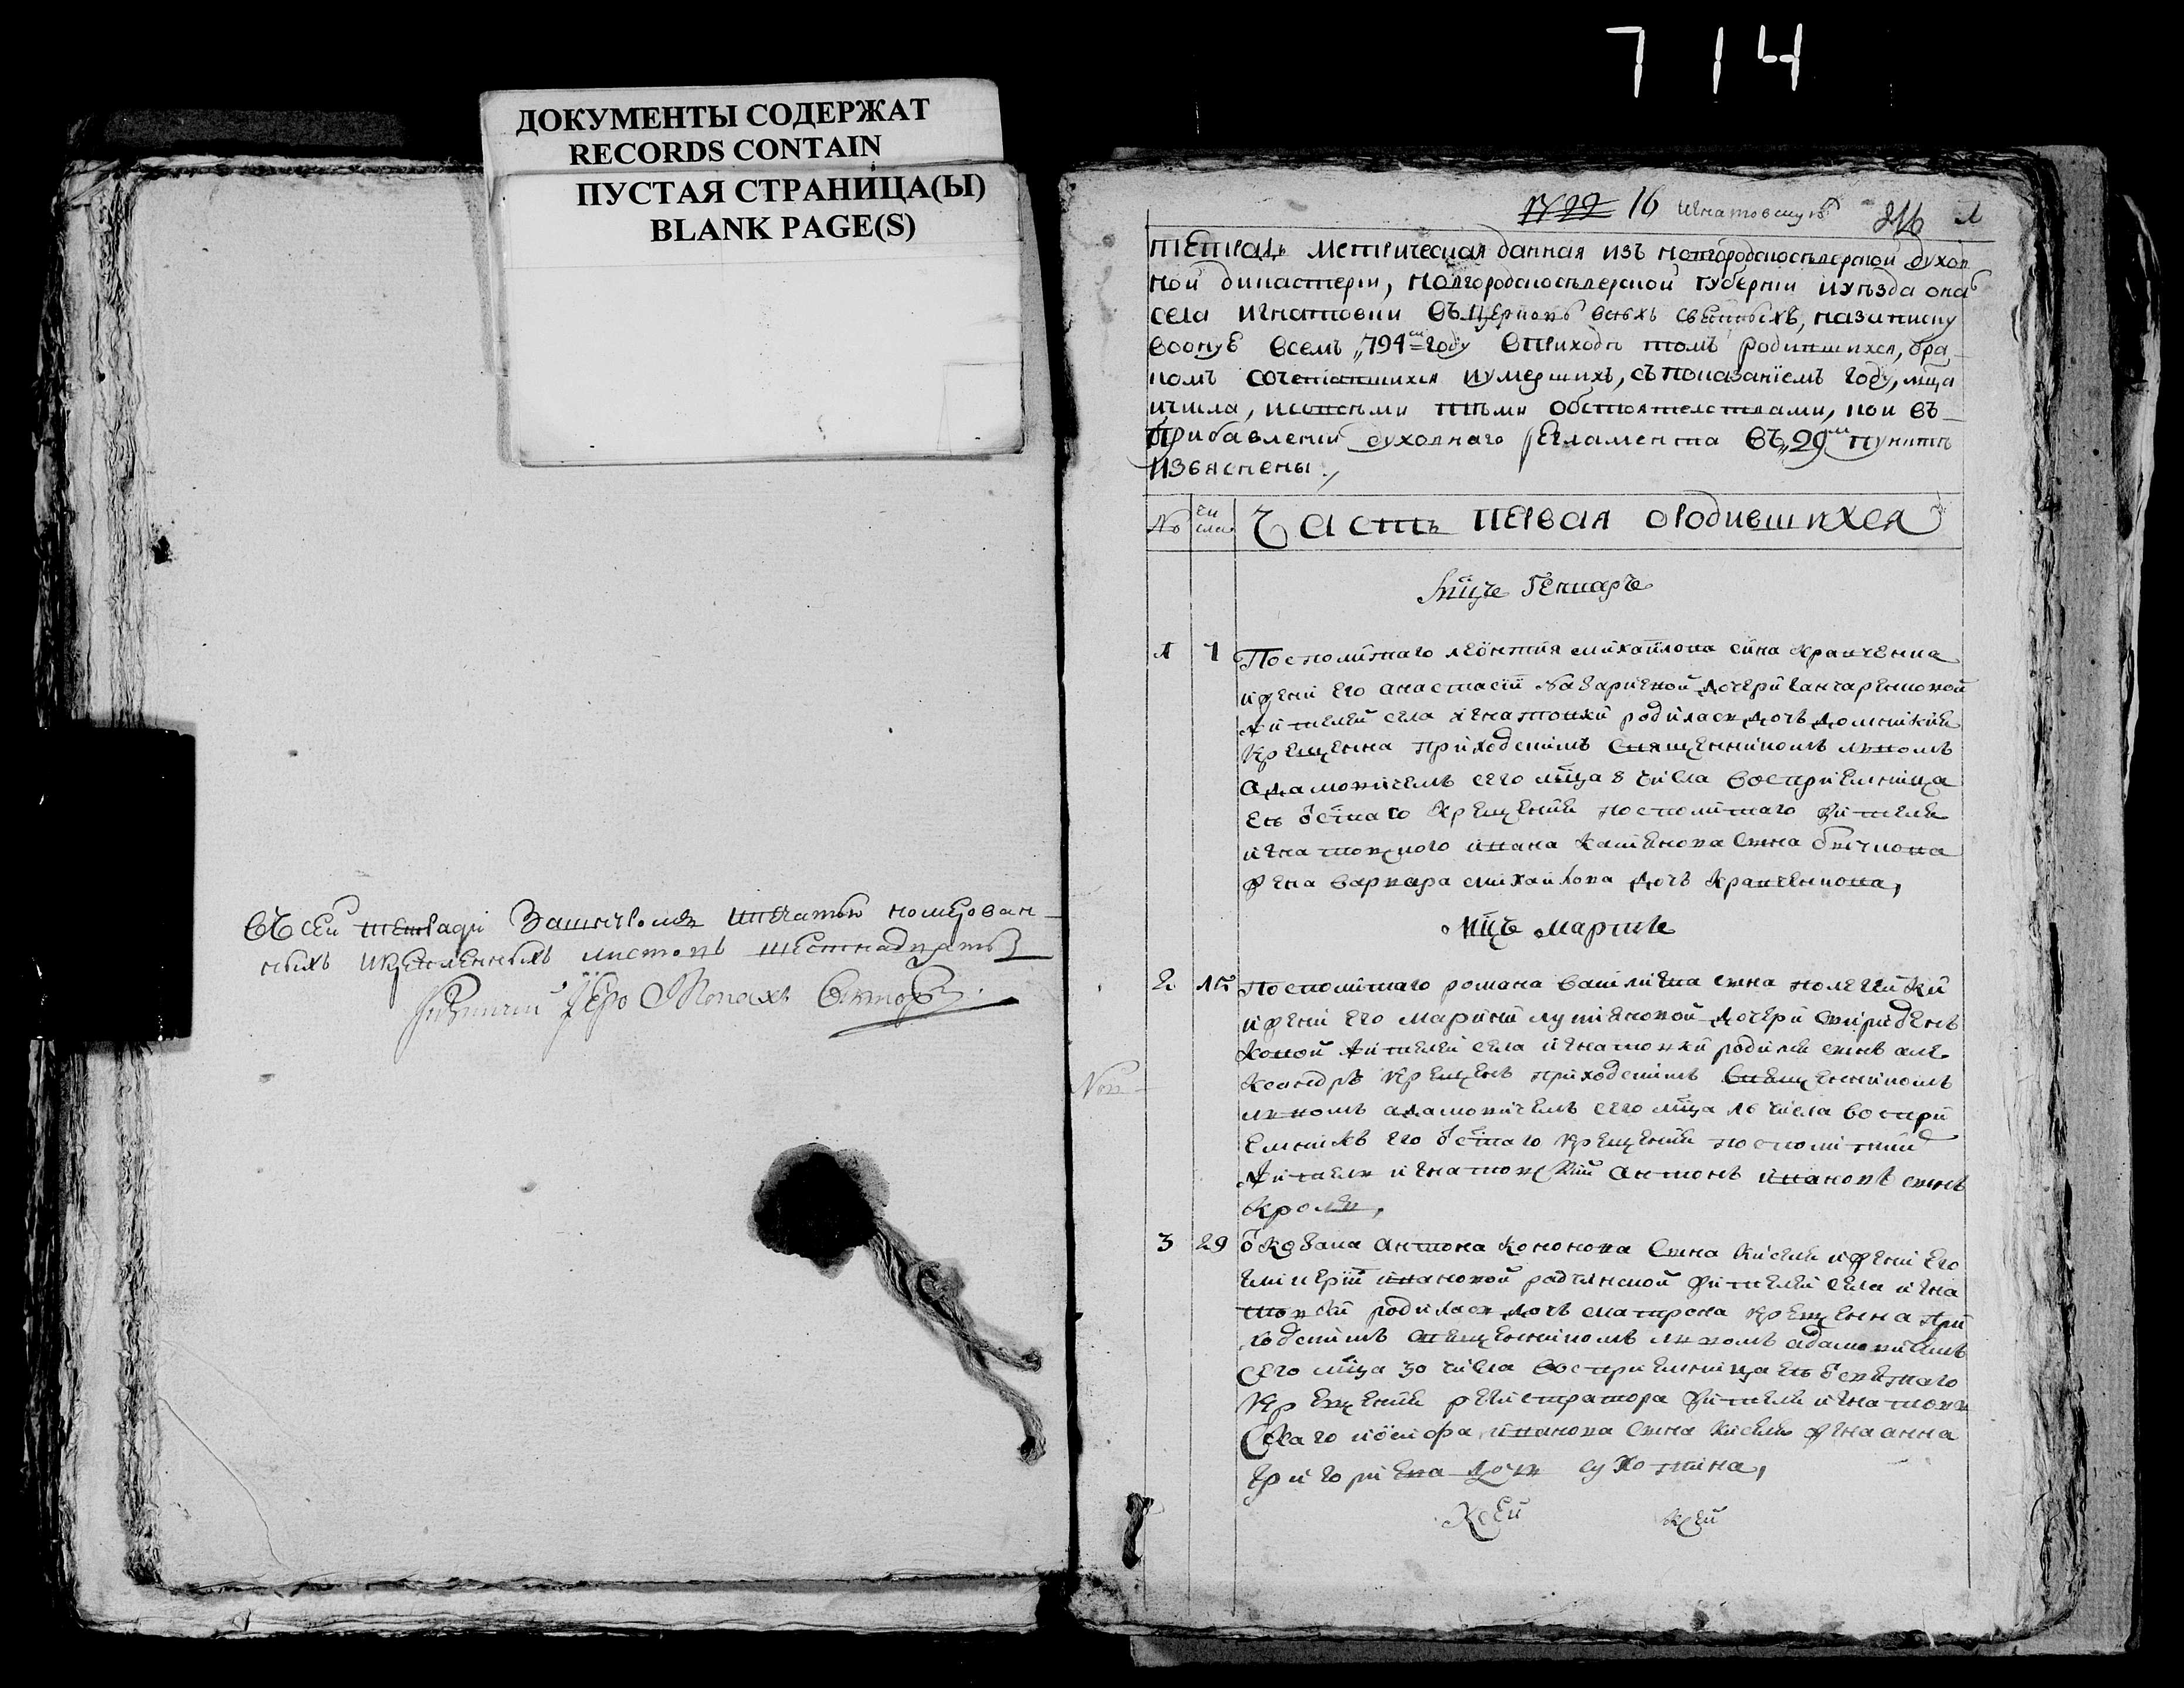 7 14
ДОКУМЕНТЫ СОДЕРЖАТ
RECORDS CONTAIN
ПУСТАЯ СТРАНИЦА(Ы)
BLANK PAGE(S)
въ сей тетради За шнуромъ ипечатю номерован-
ныхъ искрепленныхъ листовъ шестнадцать
Iеро Монахъ Викторъ
1722 16 216 1
тетрадь метрическая данная изъ новгородскосѣверской духов
ной дикастерии, новгородскосѣверской губернии иуѣзда онаго
села игнатовки въ церковь всѣхъ святыхъ, назаписку
воону въ семъ, 794м году вприходѣ томъ родившихся, бра,
комъ сочетавшихся иумершихъ, съ показанiемъ году, мца
ичисла, исовсѣми тѣми обстоятелствами, кои въ
прибавлении духовнаго регламента въ, 29м пунктѣ
изяснены
№ чи сла Часть первая ородившихся
Мцъ Генваръ
1 7 Посполитаго леонтия михайлова сина кравченка
и жени его анастасiи назариевой дочери ганчаренковой
жителей села игнатовки родилась дочъ домникия
крещенна приходскимъ священникомъ лвкомъ
адамовичемъ сего мца 8 числа восприемница
ея о стаго крещения посполитаго жителя
игнатовского ивана касиянова сина бичкова
жена варвара михайлова дочъ кравченкова,
Мцъ мартъ
2 15 Посполитаго романа василиева сина полегейки
и жени его марини лукияновой дочери спириден
ковой жителей села игнатовки родился синъ але
ксандръ крещенъ приходскимъ священникомъ
лвкомъ адамовичемъ сего мца 16 числа воспри
емникъ его о стаго крещения посполитий
житель игнатовский антонъ ивановъ синъ
кроль,
3 29 о козака антона кононова сина кисиля и жени его
гликерiи ивановой радчиковой жителей села игна
товки родилась дочъ матрона крещенна при
ходскимъ священникомъ лвкомъ адамовичемъ
сего мца 30 числа восприемница ея о святаго
крещения регистратора жителя игнатовъ
скаго иосифа иванова сина кисиля жена анна
григориева дочъ сухотина,